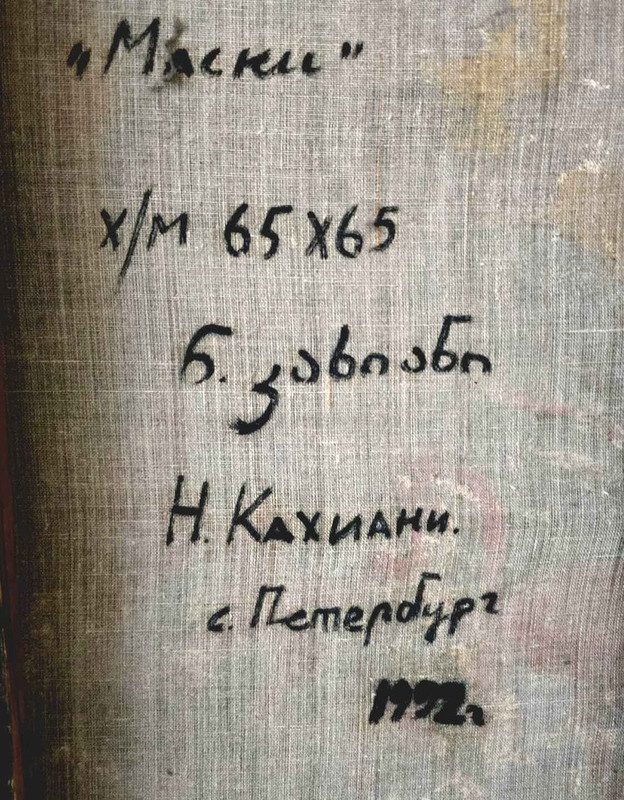 "Маски"
х/м 65х65
ნ. კახიანი
Н. Кахиани.
с. Петербург
1992г